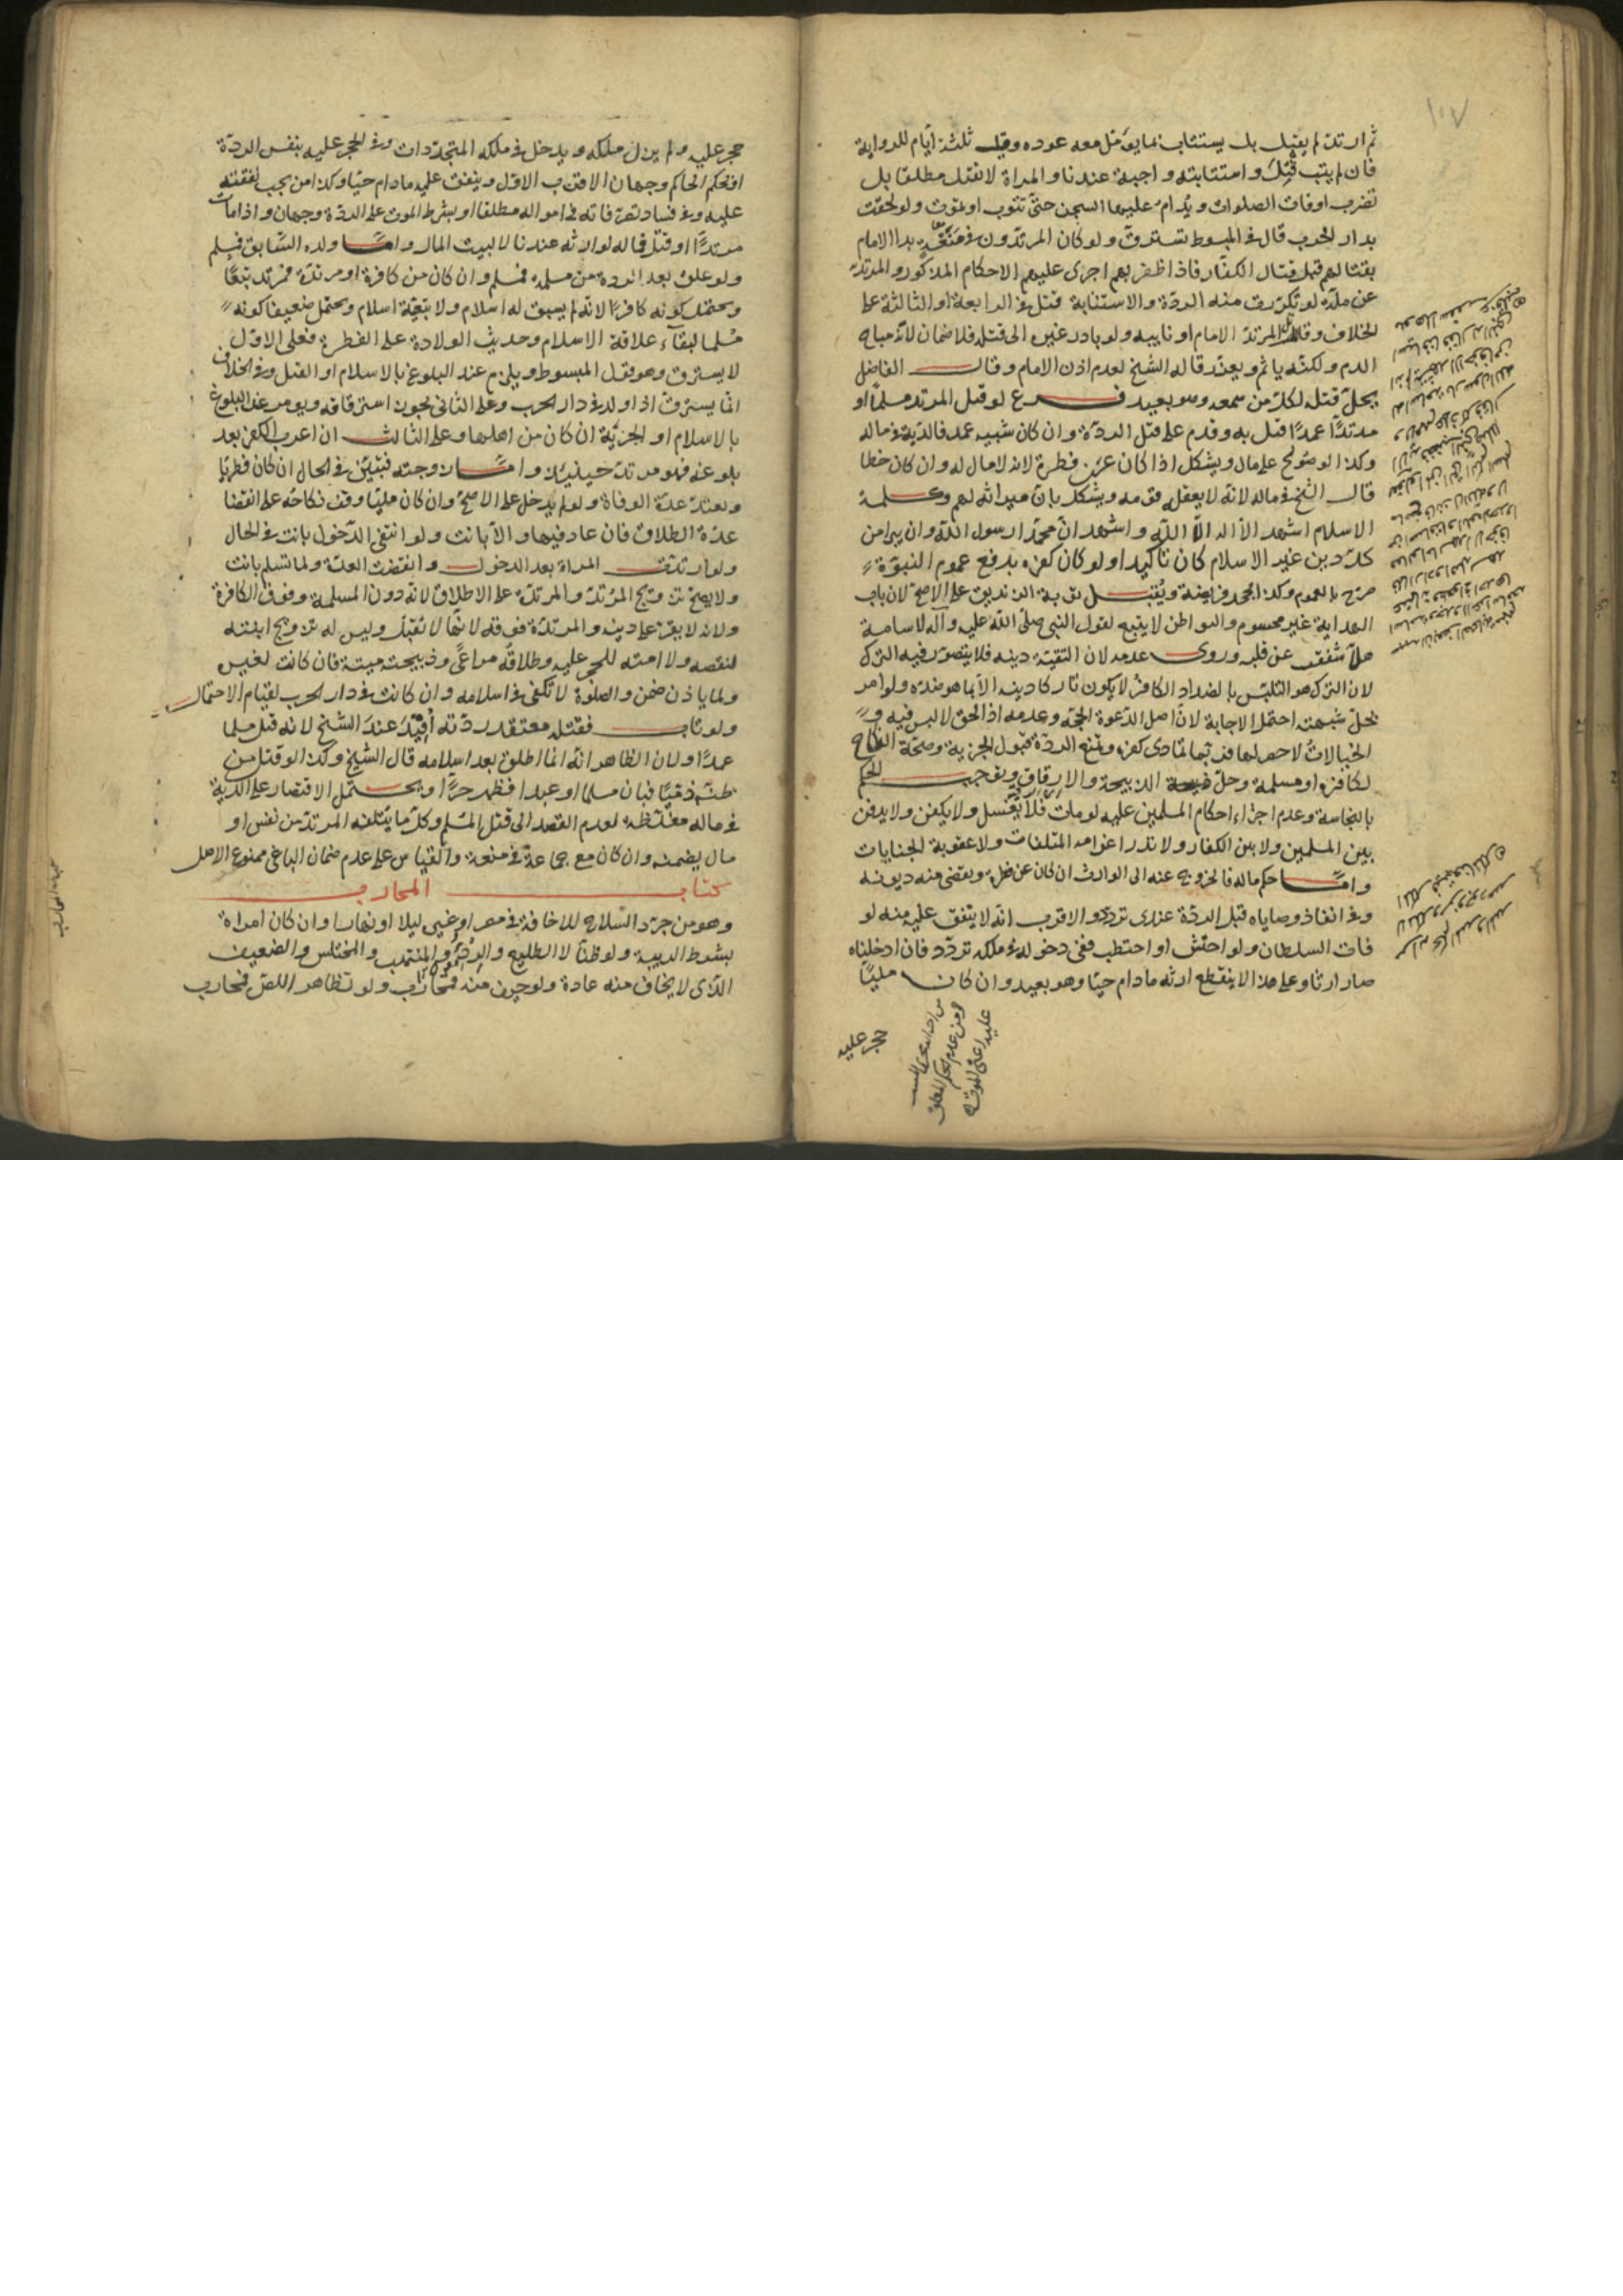 ١٠٧
ثم ارتد لم يقبل بل يستتاب بما يؤمل معه عوده وقيل ثلثة ايام للرواية
فان لم يتب قتل واستتابته واجبة عندنا والمراة لا تقتل مطلقا بل
تضرب اوقات الصلوات ويدام عليها السجن حتى تتوب او تموت ولو لحقت
بدار الحرب قال في المبسوط تسترق ولو كان المرتدون في منعة بدا الامام
بقتالهم قبل قتال الكفار فاذا ظفر بهم اجرى عليهم الاحكام المذكورة والمرتد
عن ملة لو تكررت منه الردة والاستتابة قتل في الرابعة او الثالثة على
الخلاف وقاتل المرتد الامام او نايبه ولو بادر غيره الى قتله فلا ضمان لانه مباح
الدم ولكنه ياثم ويعزر قاله الشيخ لعدم اذن الامام وقال الفاضل
يحل قتله لكل من سمعه وهو بعيد فرع لو قتل المرتد مسلما او
مرتدا عمدا قتل به وقدم على قتل الردة وان كان شبيه عمد فالدية في ماله
وكذا لو صولح على مال ويشكل اذا كان عن فطرة لانه لا مال له وان كان خطا
قال الشيخ في ماله لانه لا يعقله قومه ويشكل بان ميراثه لهم وكلمة
الاسلام اشهد الا اله الا الله واشهد ان محمدا رسول الله وان يبرا من
كل دين غير الاسلام كان تاكيدا ولو كان كفره بدفع عموم النبوة
صرح بالعموم وكذا لجحد فريضة وتقبل توبة الزنديق على الاصح لان باب
الهداية غير محسوم والبواطن لا يتبع لقول النبي صلى الله عليه وآله لاسامة
هلا شققت عن قلبه وروى عدمه لان التقية دينه فلا يتصور فيه الترك
لان الترك هو التلبس بالضد اذ الكافر لا يكون تاركا دينه الا بما هو ضده ولو امر
بحل شبهته احتمل الاجابة لان اصل الدعوة الحجة وعدمه اذ الحق لا لبس فيه و
الخيالات لا حصر لها فربما تمادى كفره وتمنع الردة قبول الجزية وصحة النكاح
لكافرة او مسلمة وحل الذبيحة والارقاق وتوجب الحكم
بالنجاسة وعدم اجراء احكام المسلمين عليه لو مات فلا يغسل ولا يكفن ولا يدفن
بين المسلمين ولا بين الكفار ولا تدرا غرامة المتلفات ولا عقوبة الجنايات
واما حكم ماله فالخروج عنه الى الوارث ان كان عن فطرة ويقضى منه ديونه
وفي انفاذ وصاياه قبل الردة عندى تردد والاقرب انه لا ينفق عليه منه لو
فات السلطان ولو احتش او احتطب ففى دخوله في ملكه تردد فان ادخلناه
صار ارثا وعلى هذا لا ينقطع ارثه ما دام حيا وهو بعيد وان كان مليا
حجر عليه
حجر عليه ولم يزل ملكه ويدخل في ملكه المتجددات وفي الحجر عليه بنفس الردة
او بحكم الحاكم وجهان الاقرب الاول وينفق عليه مادام حيا وكذا من يجب نفقته
عليه وفي فساد تصرفاته في امواله مطلقا او بشرط الموت على الردة وجهان واذا مات
مرتدا او قتل فماله لوارثه عندنا لا لبيت المال واما ولده السابق فمسلم
ولو علق بعد الردة من مسلمة فمسلم وان كان من كافرة او مرتدة فمرتد تبعا
ويحتمل كونه كافرا لانه لم يسبق له اسلام ولا تبعية اسلام ويحتمل ضعيفا كونه
مسلما لبقاء علاقة الاسلام وحديث الولادة على الفطرة فعلى الاول
لا يسترق وهو قول المبسوط ويلزم عند البلوغ بالاسلام او القتل وفي الخلاف
انما يسترق اذا ولد في دار الحرب وعلى الثاني يجوز استرقاقه ويومر عند البلوغ
بالاسلام او الجزية ان كان من اهلها وعلى الثالث ان اعرب الكفر بعد
بلوغه فهو مرتد حينيئذ واما زوجته فتبين في الحال ان كان فطريا
وتعتد عدة الوفاة ولو لم يدخل على الاصح وان كان مليا وقف نكاحه على انقضا
عدة الطلاق فان عاد فيها والا بانت ولو انتفى الدخول بانت في الحال
ولو ارتدت المراة بعد الدخول وانقضت العدة ولما تسلم بانت
ولا يصح تزويج المرتد والمرتدة على الاطلاق لانه دون المسلمة وفوق الكافرة
ولانه لا يقر على دينه والمرتدة فوقه لانها لا تقتل وليس له تزويج ابنته
لنقصه ولا امته للحجر عليه وطلاقه مراعى وذبيحته ميتة فان كانت لغيره
ولما ياذن ضمن والصلوة لا تكفى في اسلامه وان كانت في دار الحرب لقيام الاحتمال
ولو تاب فقتله معتقد ردته اقيد عند الشيخ لانه قتل مسلما
عمدا ولان الظاهر انه انما اطلق بعد اسلامه قال الشيخ وكذا لو قتل من
ظنه ذميا فبان مسلما او عبدا فظهر حرا ويحتمل الاقتصار على الدية
في ماله مغلظة لعدم القصد الى قتل المسلم وكل ما يتلفه المرتد من نفس او
مال يضمنه وان كان مع جماعة في منعة والقياس على عدم ضمان الباغى ممنوع الاصل
كتاب المحارب
وهو من جرد السلاح للاخافة في مصر او غيره ليلا او نهارا وان كان امراة
بشرط الريبة ولو ظنا لا الطليع والردء والمنتهب والمختلس والضعيف
الذى لا يخاف منه عادة ولو خيف منه فمحارب ولو تظاهر اللص فمحارب